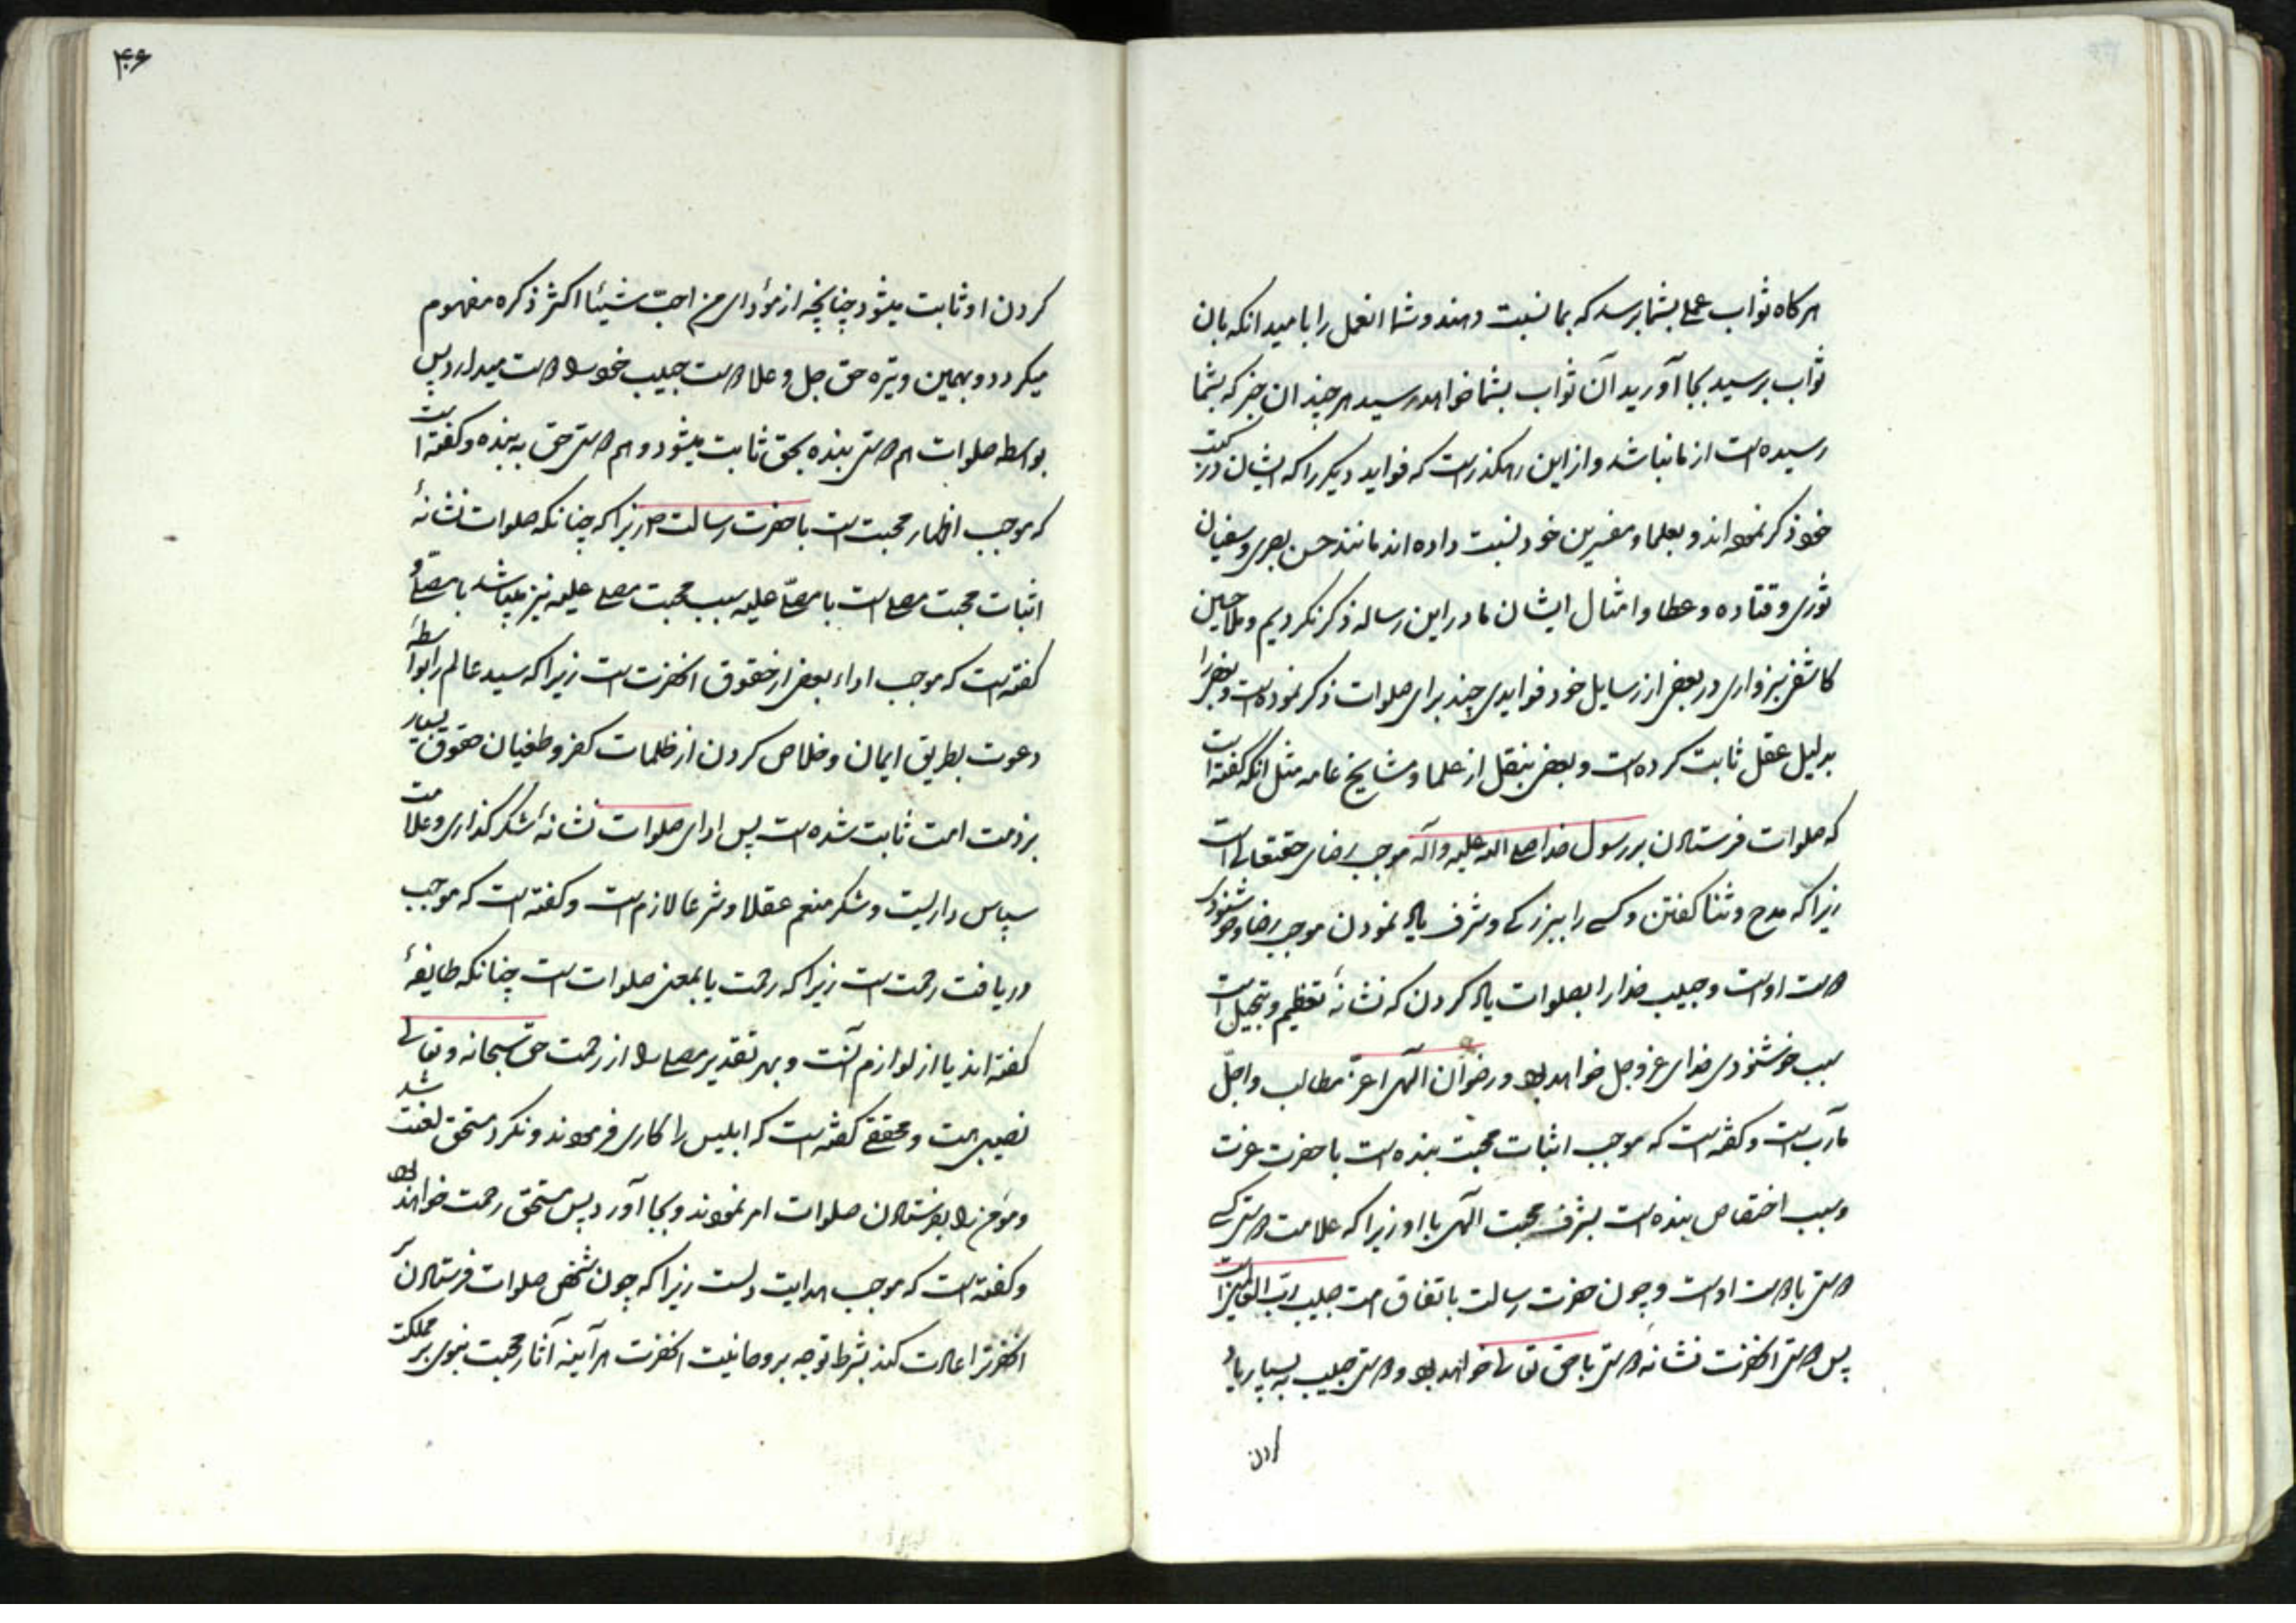 هرکاه ثواب عملی بشما برسد که بما نسبت دهند و شما انعمل را بامید انکه بان
ثواب برسید بجا آورید آن ثواب بشما خواهد رسید هرچند ان خبر که بشما
رسیده است از ما نباشد و از این رهکذر است که فواید دیکر را که ایشان در کتب
خود ذکر نموده اند و بعلما و مفسرین خود نسبت داده اند مانند حسن بصری و سفیان
ثوری و قتاده و عطا و امثال ایشان ما در این رساله ذکر نکردیم و ملا حسین
کاشفی سبزواری در بعضی از رسایل خود فوایدی چند برای صلوات ذکر نموده است و بعضی را
بدلیل عقل ثابت کرده است و بعضی بنقل از علما و مشایخ عامه مثل انکه کفته است
که صلوات فرستادن بر رسول خدا صلی الله علیه و آله موجب رضای حقتعالی است
زیرا که مدح و ثنا کفتن و کسی را ببزرکی و شرف یاد نمودن موجب رضا و خوشنودی
دوست اوست و حبیب خدا را بصلوات یاد کردن که نشانهٔ تعظیم و تبجیل است
سبب خوشنودی خدای عز و جل خواهد بود و رضوان الهی اعز مطالب و اجلّ
مآرب است و کفته است که موجب اثبات محبت بنده است با حضرت عزت
و سبب اختصاص بنده است بشرف محبت الهی با او زیرا که علامت دوستی کسی
دوستی با دوست اوست و چون حضرت رسالت باتفاق امت حبیب رب العالمین است
پس دوستی انحضرت نشانهٔ دوستی با حق تعالی خواهد بود و دوستی حبیب به بسیار یاد
کردن
۴۶
کردن او ثابت میشود چنانچه از مؤدای من احبّ شیئا اکثر ذکره مفهوم
میکردد و بهمین وتیره حق جل و علا دوست حبیب خود را دوست میدارد پس
بواسطه صلوات هم دوستی بنده بحق ثابت میشود و هم دوستی حق به بنده و کفته است
که موجب اظهار محبت است با حضرت رسالت ص زیرا که چنانکه صلوات نشانهٔ
اثبات محبت مصلی است با مصلّی علیه سبب محبت مصلی علیه نیز میباشد با مصلّی و
کفته است که موجب اداء بعضی از حقوق انحضرت است زیرا که سید عالم را بواسطهٔ
دعوت بطریق ایمان و خلاص کردن از ظلمات کفر و طغیان حقوق بسیار
بر ذمت امت ثابت شده است پس ادای صلوات نشانهٔ شکر کذاری و علامت
سپاس داریست و شکر منعم عقلا و شرعا لازم است و کفته است که موجب
دریافت رحمت است زیرا که رحمت یا بمعنی صلوات است چنانکه طایفهٔ
کفته اند یا از لوازم آنست و بهر تقدیر مصلی را از رحمت حق سبحانه و تعالی
نصیبی هست و محققی کفته است که ابلیس را کاری فرمودند و نکرد مستحق لعنت شد
و مؤمن را بفرستادن صلوات امر نمودند و بجا آورد پس مستحق رحمت خواهند بود
و کفته است که موجب هدایت دلست زیرا که چون شخصی صلوات فرستادن
انحضرترا عادت کند بشرط توجه بروحانیت انحضرت هر آینه آثار محبت نبوی بر مملکت